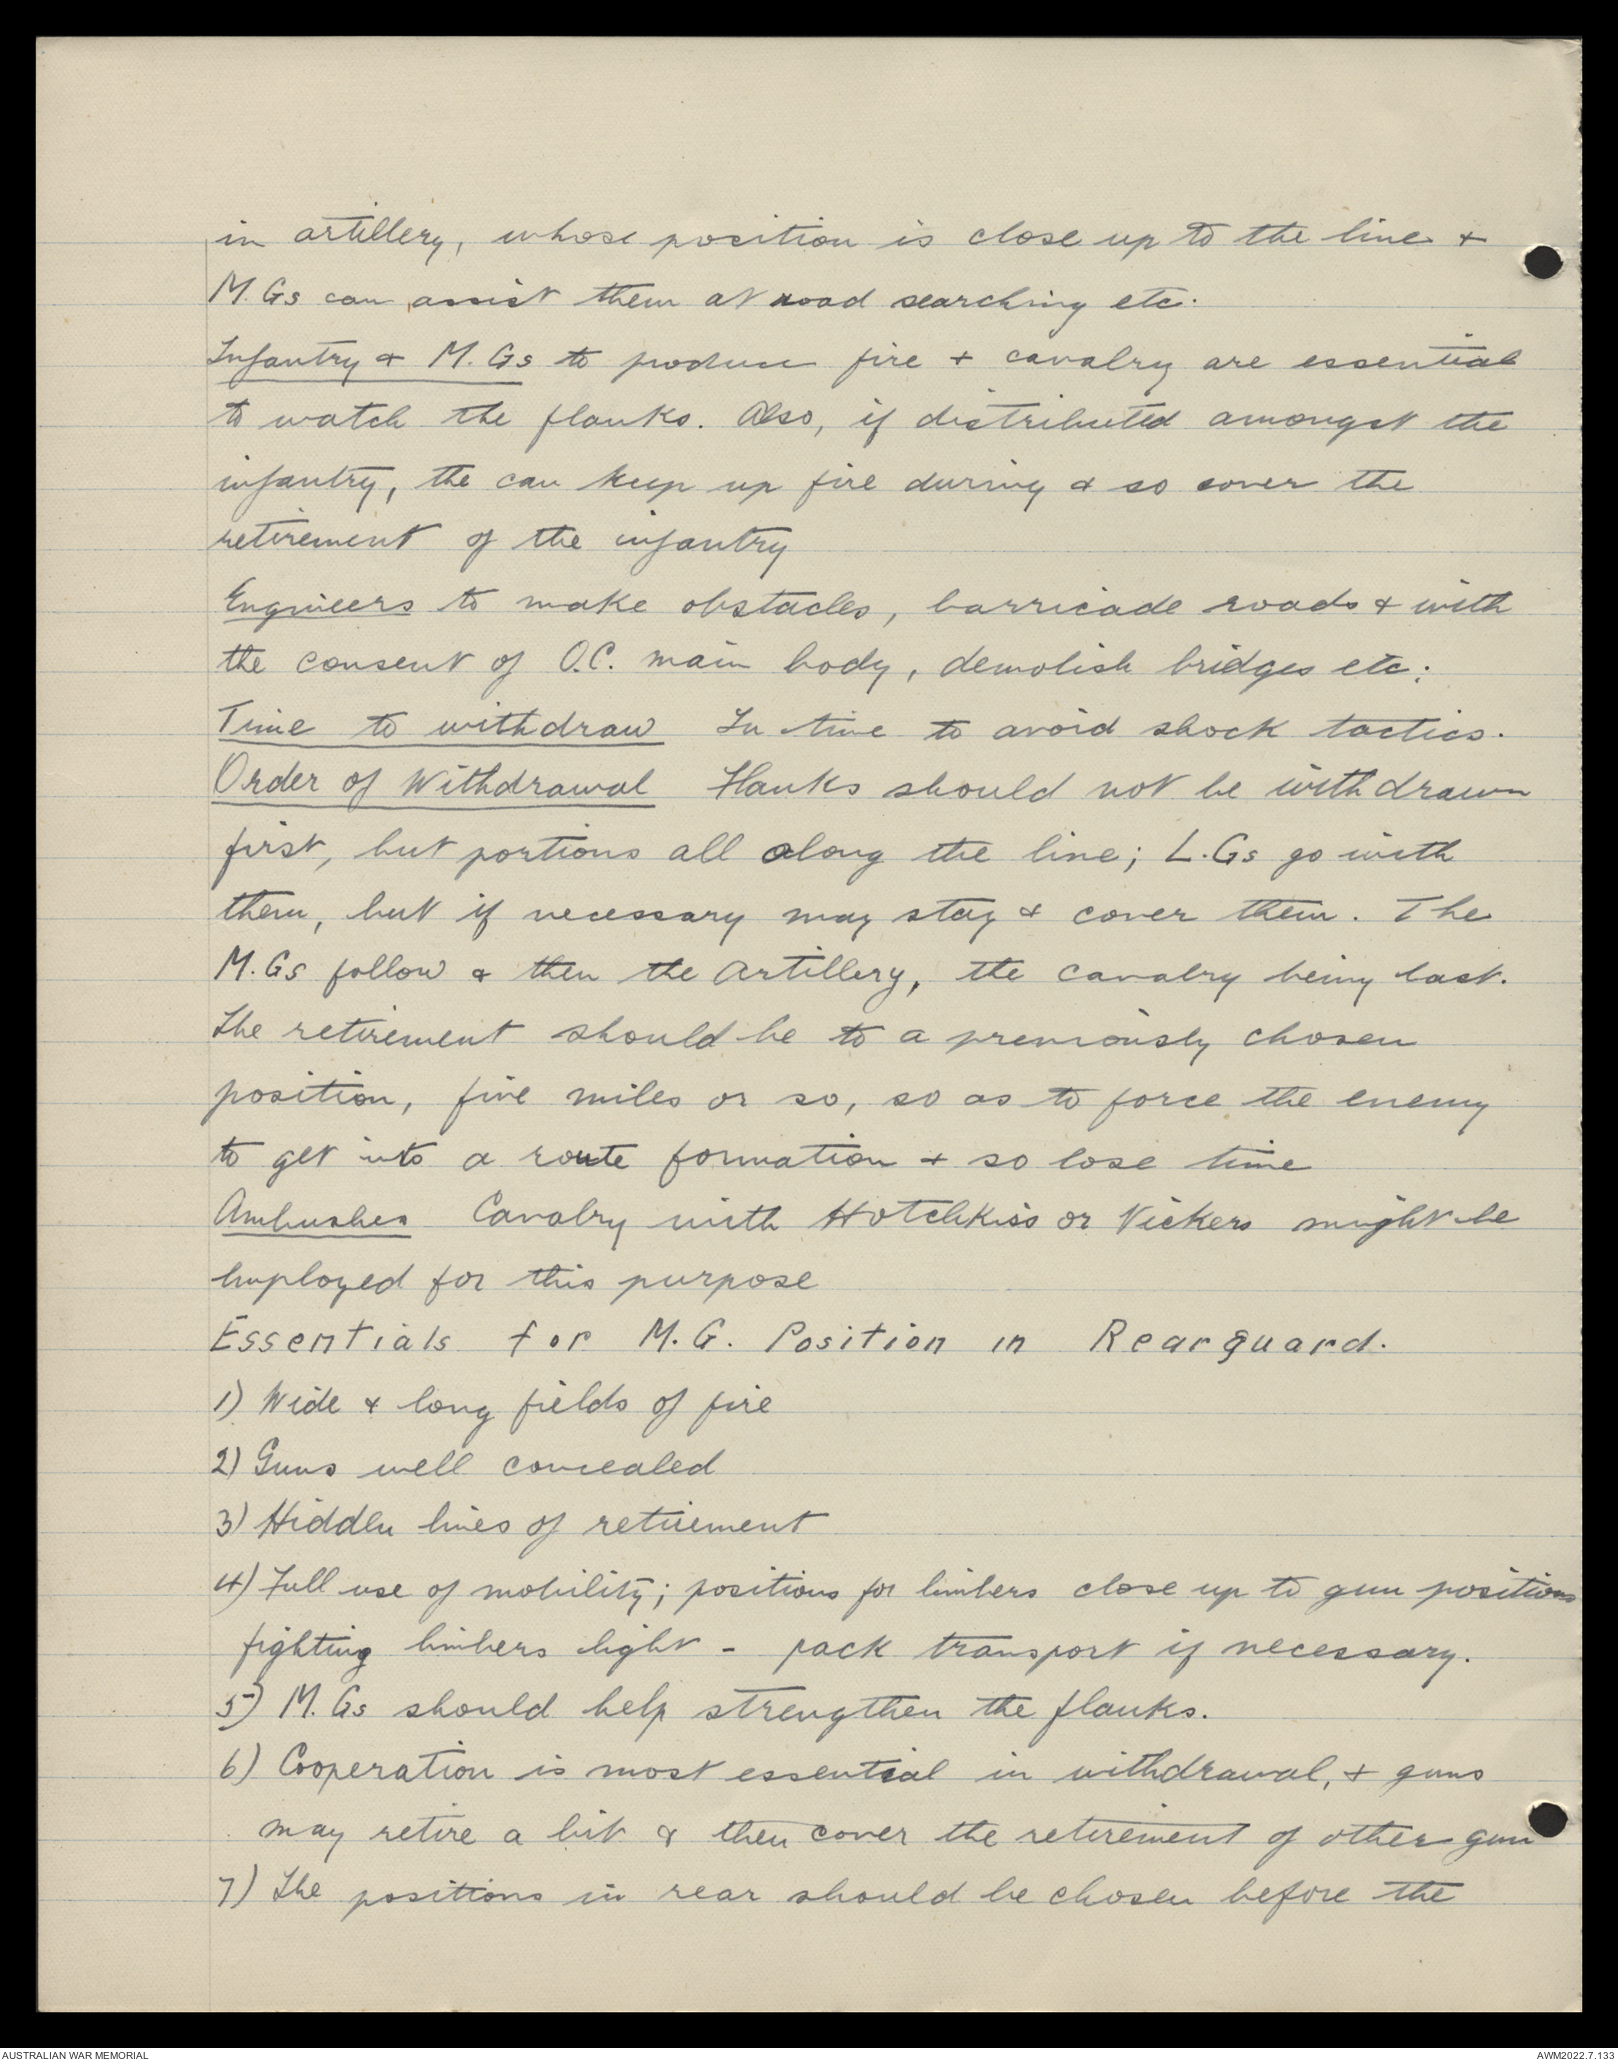 in artillery, whose position is close up to the line +
M.Gs can assist them at road searching etc.
Infantry & M.Gs to produce fire + cavalry are essential
to watch the flanks. Also, if distributed amongst the
infantry, the can keep up fire during & so cover the
retirement of the infantry
Engineers to make obstacles, barricade roads & with
the consent of O.C. main body, demolish bridges etc:
Time to withdraw In time to avoid shock tactics.
Order of Withdrawal Flanks should not be withdrawn
first, but portions all along the line; L.Gs go with
them, but if necessary may stay & cover them. The
M.Gs follow & then the Artillery, the cavalry being last.
The retirement should be to a previously chosen
position, five miles or so, so as to force the enemy
to get into a route formation + so lose time
Ambushes Cavalry with Hotchkiss or Vickers might be
employed for this purpose
Essentials for M.G. Position in Rearguard.
1) Wide & long fields of fire
2) Guns well concealed
3) Hidden lines of retirement
4) Full use of mobility; positions for limbers close up to gun positions
fighting limbers light - pack transport if necessary.
5) M.Gs should help strengthen the flanks.
6) Cooperation is most essential in withdrawal, + guns
may retire a bit & then cover the retirement of other gun
7) The positions in rear should be chosen before the
AUSTRALIAN WAR MEMORIAL
AWM2022.7.133